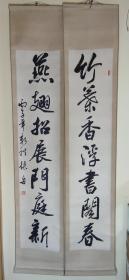 竹叶香浮書閣春
燕翅招展門庭新
丙子年